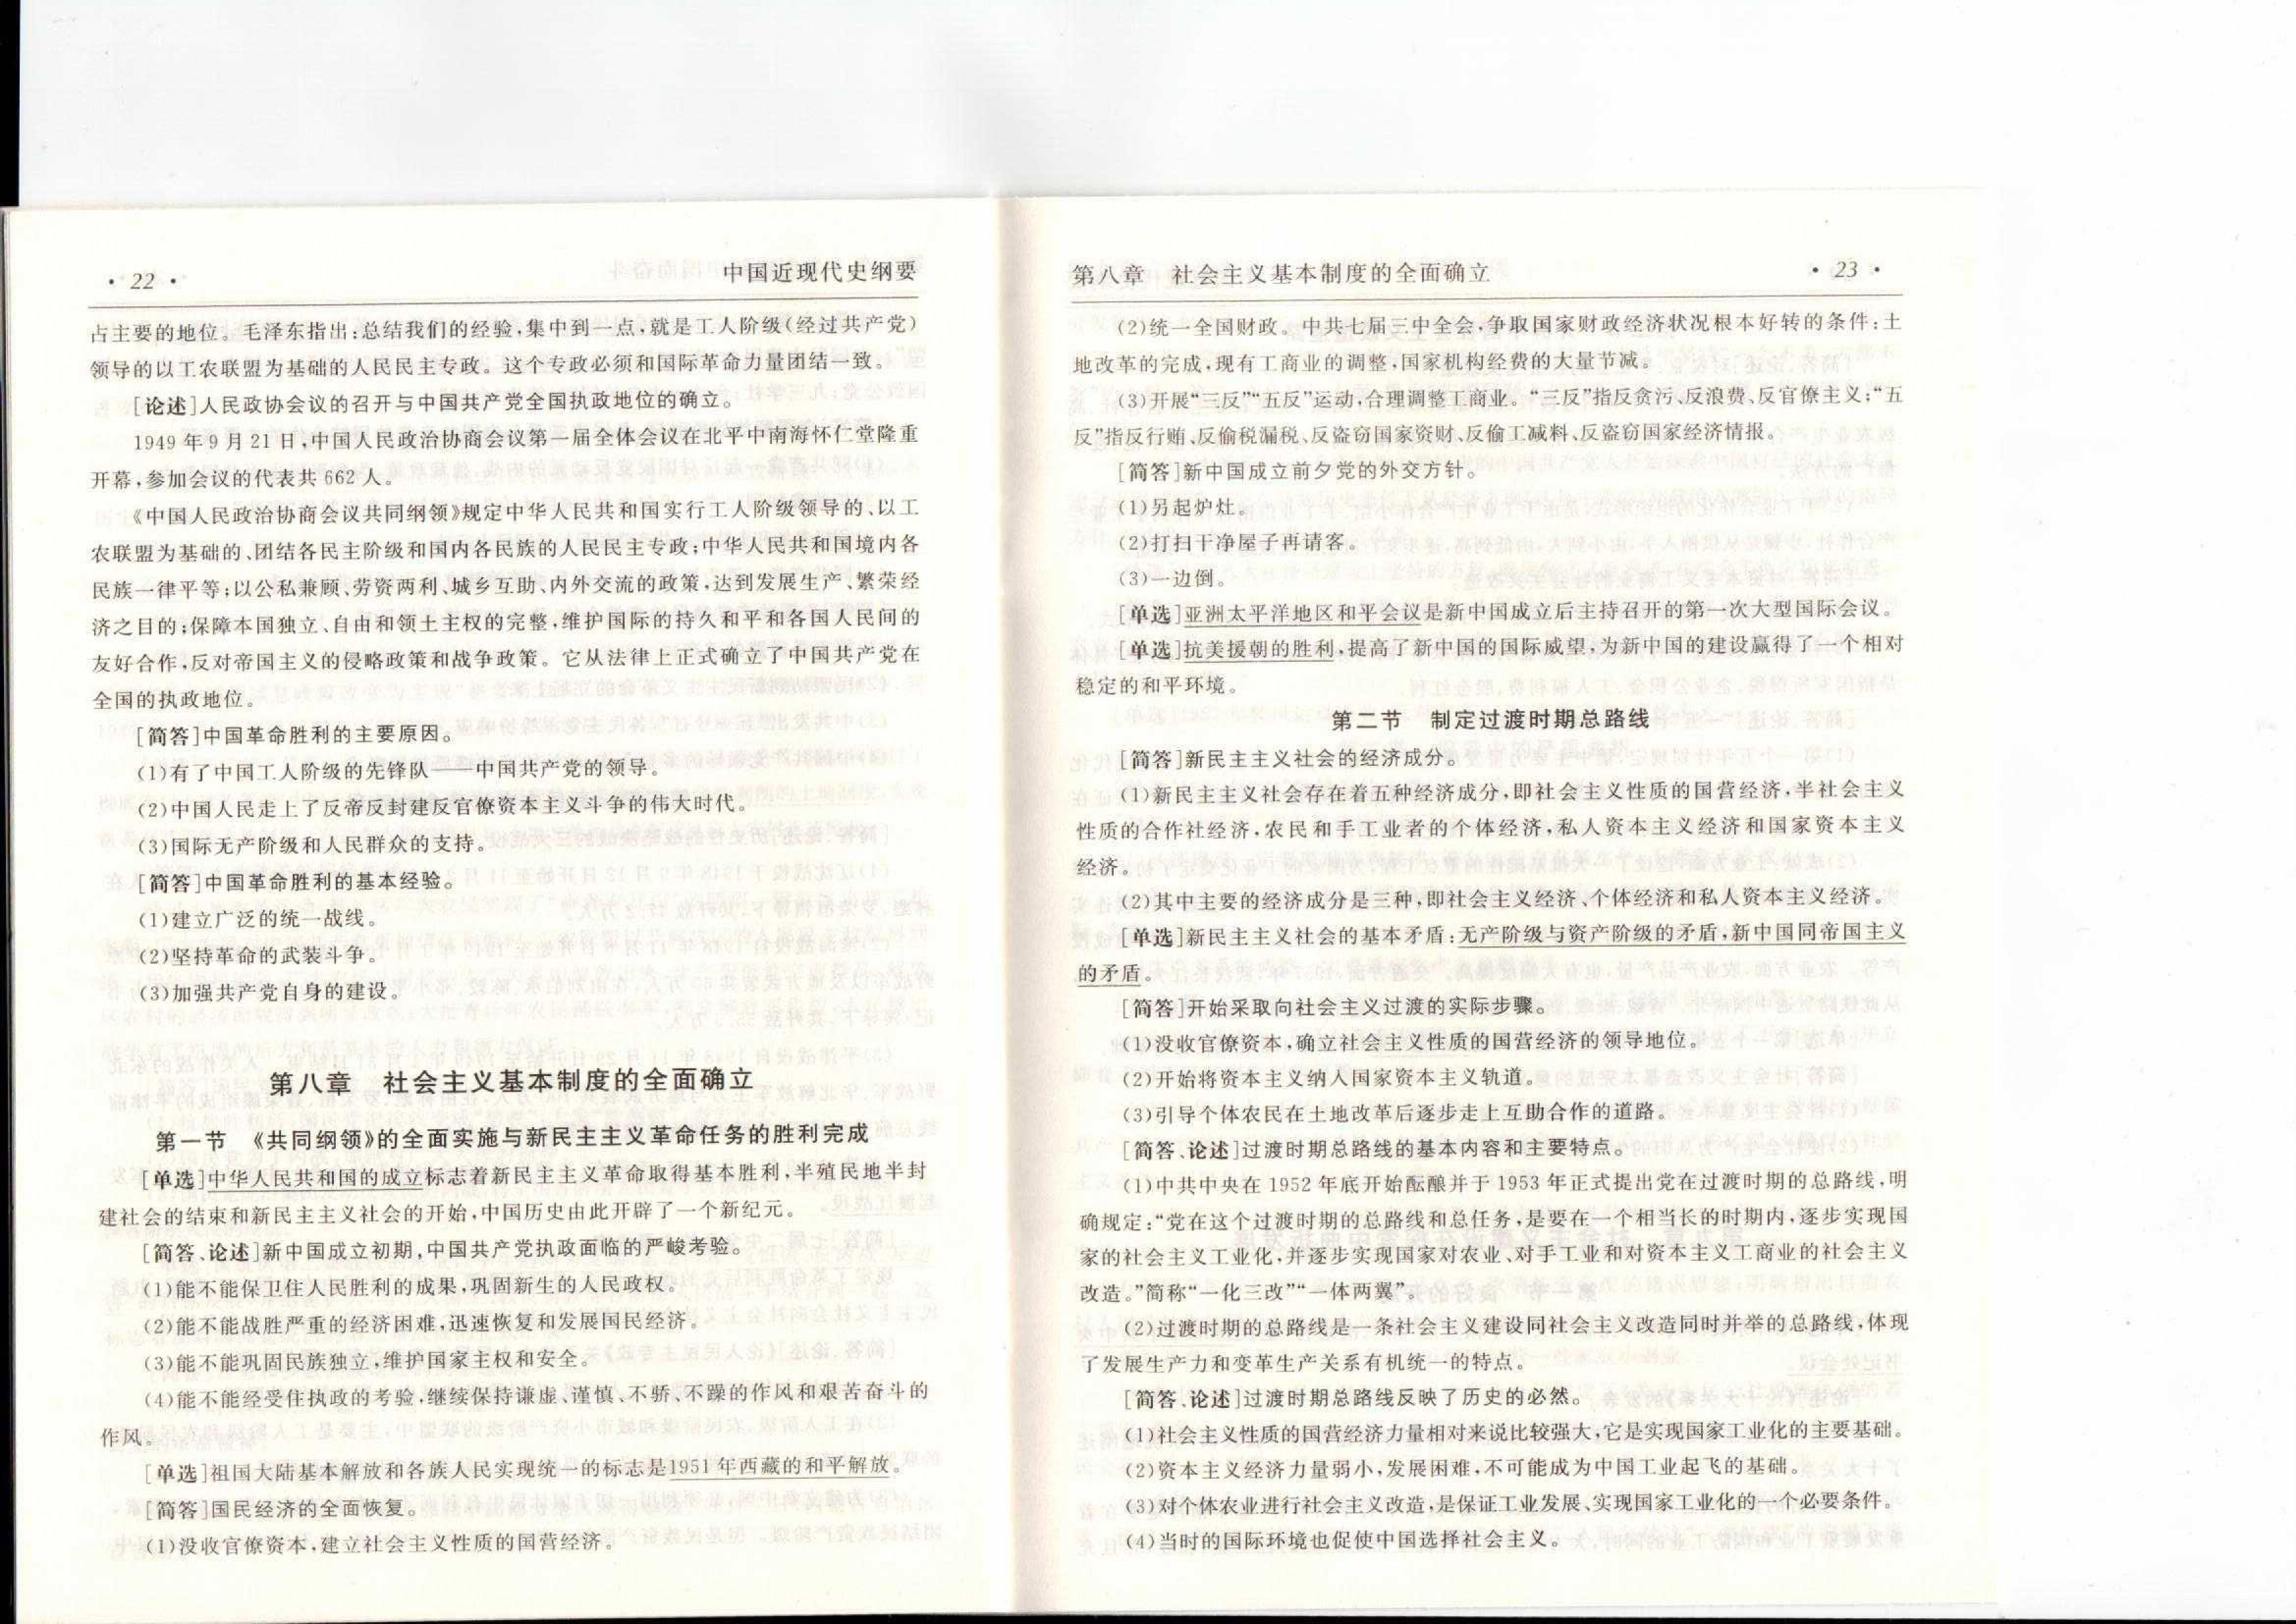 · 22 ·
中国近现代史纲要
占主要的地位。毛泽东指出:总结我们的经验,集中到一点,就是工人阶级(经过共产党)
领导的以工农联盟为基础的人民民主专政。这个专政必须和国际革命力量团结一致。
[论述]人民政协会议的召开与中国共产党全国执政地位的确立。
1949年9月21日,中国人民政治协商会议第一届全体会议在北平中南海怀仁堂隆重
开幕,参加会议的代表共662人。
《中国人民政治协商会议共同纲领》规定中华人民共和国实行工人阶级领导的、以工
农联盟为基础的、团结各民主阶级和国内各民族的人民民主专政;中华人民共和国境内各
民族一律平等;以公私兼顾、劳资两利、城乡互助、内外交流的政策,达到发展生产、繁荣经
济之目的;保障本国独立、自由和领土主权的完整,维护国际的持久和平和各国人民间的
友好合作,反对帝国主义的侵略政策和战争政策。它从法律上正式确立了中国共产党在
全国的执政地位。
[简答]中国革命胜利的主要原因。
(1)有了中国工人阶级的先锋队——中国共产党的领导。
(2)中国人民走上了反帝反封建反官僚资本主义斗争的伟大时代。
(3)国际无产阶级和人民群众的支持。
[简答]中国革命胜利的基本经验。
(1)建立广泛的统一战线。
(2)坚持革命的武装斗争。
(3)加强共产党自身的建设。
第八章 社会主义基本制度的全面确立
第一节 《共同纲领》的全面实施与新民主主义革命任务的胜利完成
[单选]中华人民共和国的成立标志着新民主主义革命取得基本胜利,半殖民地半封
建社会的结束和新民主主义社会的开始,中国历史由此开辟了一个新纪元。
[简答、论述]新中国成立初期,中国共产党执政面临的严峻考验。
(1)能不能保卫住人民胜利的成果,巩固新生的人民政权。
(2)能不能战胜严重的经济困难,迅速恢复和发展国民经济。
(3)能不能巩固民族独立,维护国家主权和安全。
(4)能不能经受住执政的考验,继续保持谦虚、谨慎、不骄、不躁的作风和艰苦奋斗的
作风。
[单选]祖国大陆基本解放和各族人民实现统一的标志是1951年西藏的和平解放。
[简答]国民经济的全面恢复。
(1)没收官僚资本,建立社会主义性质的国营经济。
第八章 社会主义基本制度的全面确立
· 23 ·
(2)统一全国财政。中共七届三中全会,争取国家财政经济状况根本好转的条件:土
地改革的完成,现有工商业的调整,国家机构经费的大量节减。
(3)开展“三反”“五反”运动,合理调整工商业。“三反”指反贪污、反浪费、反官僚主义;“五
反”指反行贿、反偷税漏税、反盗窃国家资财、反偷工减料、反盗窃国家经济情报。
[简答]新中国成立前夕党的外交方针。
(1)另起炉灶。
(2)打扫干净屋子再请客。
(3)一边倒。
[单选]亚洲太平洋地区和平会议是新中国成立后主持召开的第一次大型国际会议。
[单选]抗美援朝的胜利,提高了新中国的国际威望,为新中国的建设赢得了一个相对
稳定的和平环境。
第二节 制定过渡时期总路线
[简答]新民主主义社会的经济成分。
(1)新民主主义社会存在着五种经济成分,即社会主义性质的国营经济,半社会主义
性质的合作社经济,农民和手工业者的个体经济,私人资本主义经济和国家资本主义
经济。
(2)其中主要的经济成分是三种,即社会主义经济、个体经济和私人资本主义经济。
[单选]新民主主义社会的基本矛盾:无产阶级与资产阶级的矛盾,新中国同帝国主义
的矛盾。
[简答]开始采取向社会主义过渡的实际步骤。
(1)没收官僚资本,确立社会主义性质的国营经济的领导地位。
(2)开始将资本主义纳人国家资本主义轨道。
(3)引导个体农民在土地改革后逐步走上互助合作的道路。
[简答、论述]过渡时期总路线的基本内容和主要特点。
(1)中共中央在1952年底开始酝酿并于1953年正式提出党在过渡时期的总路线,明
确规定:“党在这个过渡时期的总路线和总任务,是要在一个相当长的时期内,逐步实现国
家的社会主义工业化,并逐步实现国家对农业、对手工业和对资本主义工商业的社会主义
改造。”简称“一化三改”“一体两翼”。
(2)过渡时期的总路线是一条社会主义建设同社会主义改造同时并举的总路线,体现
了发展生产力和变革生产关系有机统一的特点。
[简答、论述]过渡时期总路线反映了历史的必然。
(1)社会主义性质的国营经济力量相对来说比较强大,它是实现国家工业化的主要基础。
(2)资本主义经济力量弱小,发展困难,不可能成为中国工业起飞的基础。
(3)对个体农业进行社会主义改造,是保证工业发展、实现国家工业化的一个必要条件。
(4)当时的国际环境也促使中国选择社会主义。